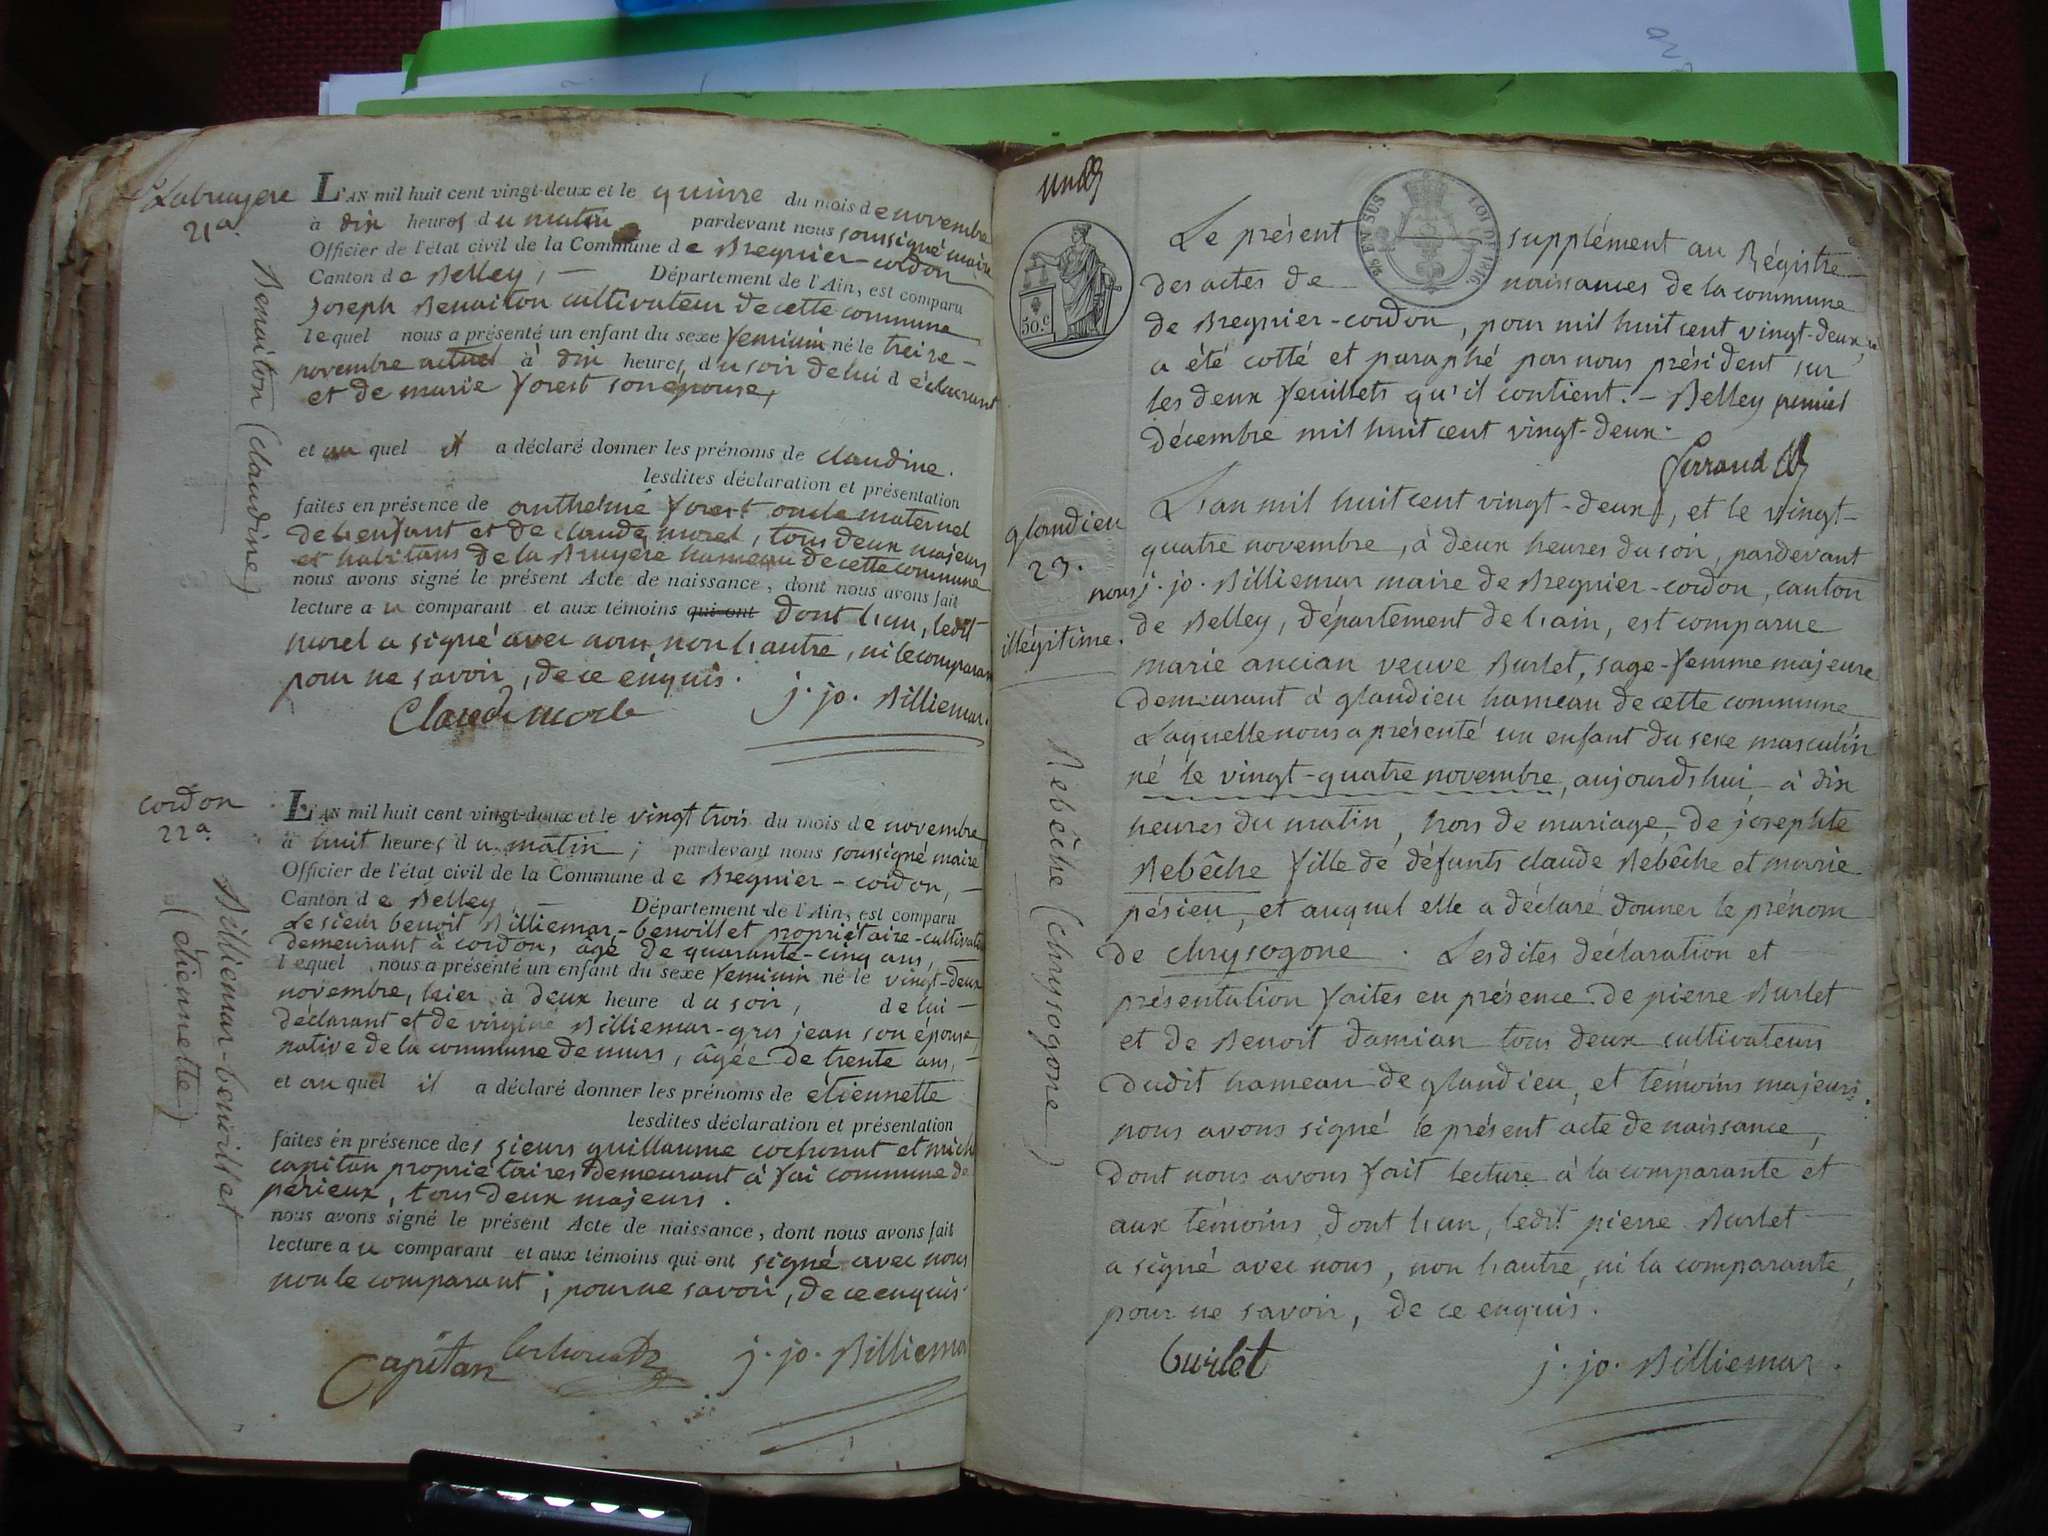 Labruyere
21a.
Benoiton (claudine)
L'AN mil huit cent vingt-deux et le quinze du mois de novembre
à dix heures du matin pardevant nous soussigné maire
Officier de l'état civil de la Commune de Bregnier-cordon
Canton de Belley, — Département de l'Ain, est comparu
joseph Benoiton cultivateur de cette commune
lequel nous a présenté un enfant du sexe feminin né le treize-
novembre actuel à dix heures du soir de lui déclarant
et de marie forest son épouse,
et auquel il a déclaré donner les prénoms de claudine.
lesdites déclaration et présentation
faites en présence de anthelme forest oncle maternel
de l'enfant et de claude morel, tous deux majeurs
et habitans de la Bruyere hameau de cette commune
nous avons signé le présent Acte de naissance, dont nous avons fait
lecture au comparant et aux témoins qui ont dont l'un, ledit
morel a signé avec nous, non l'autre, ni le comparant
pour ne savoir, de ce enquis.
j. jo. Billiemaz.
cordon
22a.
Billiemaz-benoillet
(étiennette)
L'AN mil huit cent vingt-deux et le vingt trois du mois de novembre
à huit heures du matin; pardevant nous soussigné maire
Officier de l'état civil de la Commune de Bregnier-cordon, —
Canton de Belley, — Département de l'Ain, est comparu
Le sieur benoit Billiemaz-benoillet propriétaire-cultivateur
demeurant à cordon, âgé de quarante-cinq ans, —
lequel nous a présenté un enfant du sexe feminin né le vingt-deux
novembre, hier à deux heure du soir, de lui —
déclarant et de virginie Billiemaz-gros jean son épouse,
native de la commune de murs, âgée de trente ans, —
et auquel il a déclaré donner les prénoms de étiennette
lesdites déclaration et présentation
faites en présence des sieurs guillaume cochonat et mich
capitan propriétaires demeurant à fai commune de
périeux, tous deux majeurs.
nous avons signé le présent Acte de naissance, dont nous avons fait
lecture au comparant et aux témoins qui ont signé avec nous
non le comparant; pour ne savoir, de ce enquis.
Capitan
j. jo. Billiemaz
50.c
EN SUS
LOI DE 1816
Le présent supplément au Régistre
des actes de naissances de la commune
de Bregnier-cordon, pour mil huit cent vingt-deux,
a été cotté et paraphé par nous président sur
les deux feuillets qu'il contient. - Belley premier
décembre mil huit cent vingt-deux.
ferrand
glandieu
23.
illégitime.
Rebêche (chrysogone)
L'an mil huit cent vingt-deux, et le vingt-
quatre novembre, à deux heures du soir, pardevant
nous j. jo. Billiemaz maire de Bregnier-cordon, canton
de Belley, département de l'ain, est comparue
marie ancian veuve Burlet, sage-femme majeure
demeurant à glandieu hameau de cette commune
Laquelle nous a présenté un enfant du sexe masculin
né le vingt-quatre novembre, aujourd'hui à dix
heures du matin, hors de mariage, de josephte
Rebêche fille de défunts claude Rebêche et marie
pésieu, et auquel elle a déclaré donner le prénom
de chrysogone. Lesdites déclaration et
présentation faites en présence de pierre Burlet
et de Benoit damian tous deux cultivateurs
dudit hameau de glandieu, et témoins majeurs.
nous avons signé le présent acte de naissance,
dont nous avons fait lecture à la comparante et
aux témoins dont l'un, ledit pierre Burlet
a signé avec nous, non l'autre, ni la comparante,
pour ne savoir, de ce enquis.
burlet
j. jo. Billiemaz.